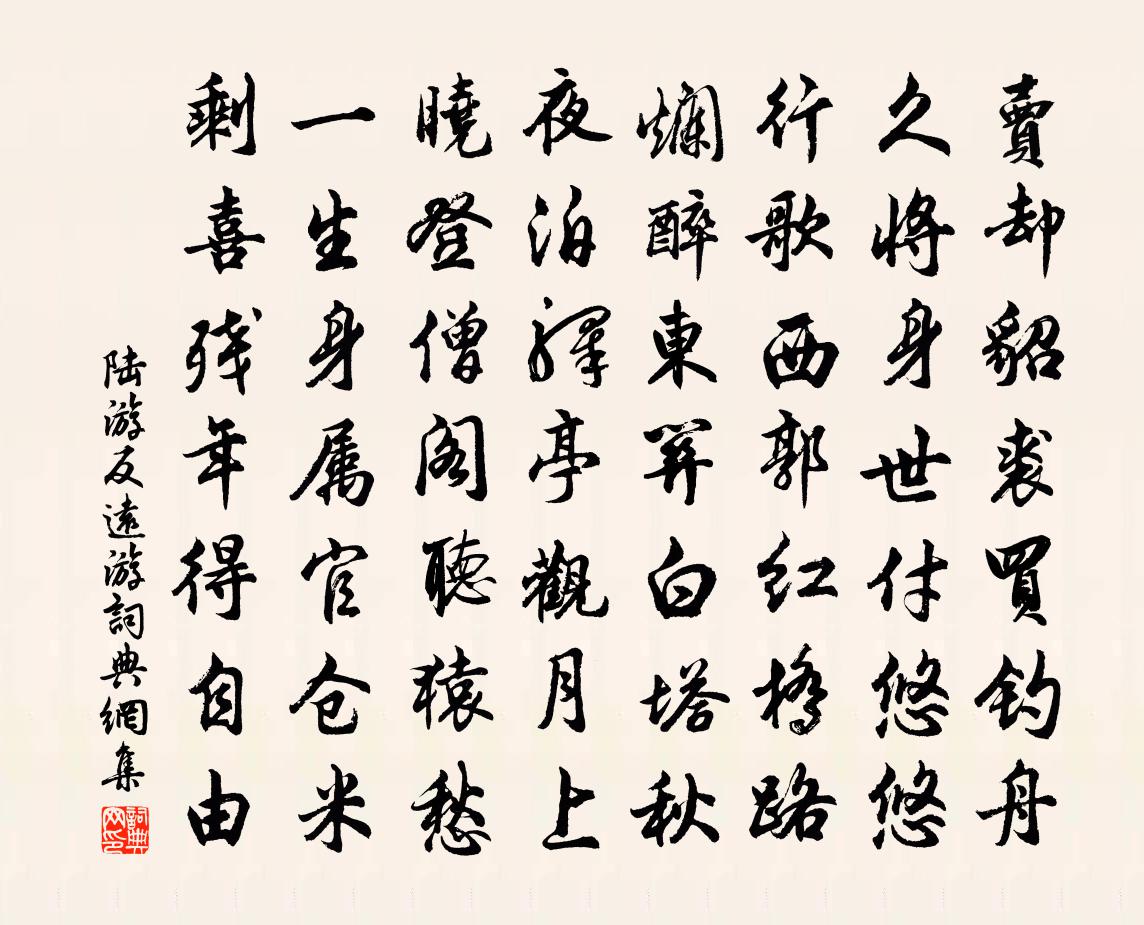 賣却貂裘買钓舟
久將身世付悠悠
行歌西郭红橋路
爛醉東關白塔秋
夜泊驛亭觀月上
曉登僧阁聽猿愁
一生身属官仓米
剩喜残年得自由
陆游反遠游詞典網集
詞典网印